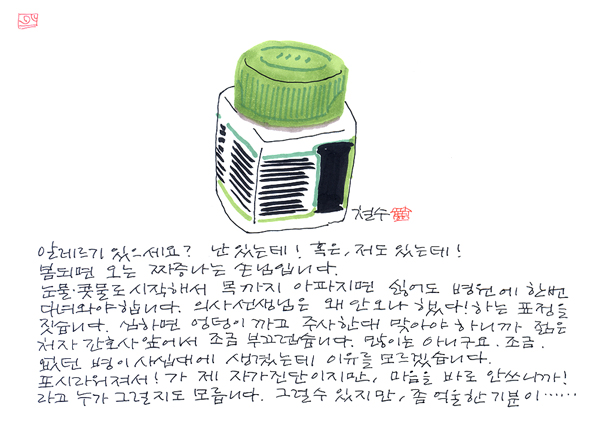 철수
알레르기 있으세요? 난 있는데! 혹은, 저도 있는데!
봄되면 오는 짜증나는 손님입니다.
눈물·콧물로 시작해서 목까지 아파지면 싫어도 병원에 한번
다녀와야합니다. 의사선생님은 왜 안오나 했다!하는 표정을
짓습니다. 심하면 엉덩이 까고 주사한대 맞아야 하니까 젊은
처자 간호사 앞에서 조금 부끄럽습니다. 많이는 아니구요. 조금.
없던 병이 사십대에 생겼는데 이유를 모르겠습니다.
포시라워져서!가 제 자가진단이지만, 마음을 바로 안쓰니까!
라고 누가 그럴지도 모릅니다. 그럴수 있지만, 좀 억울한 기분이……